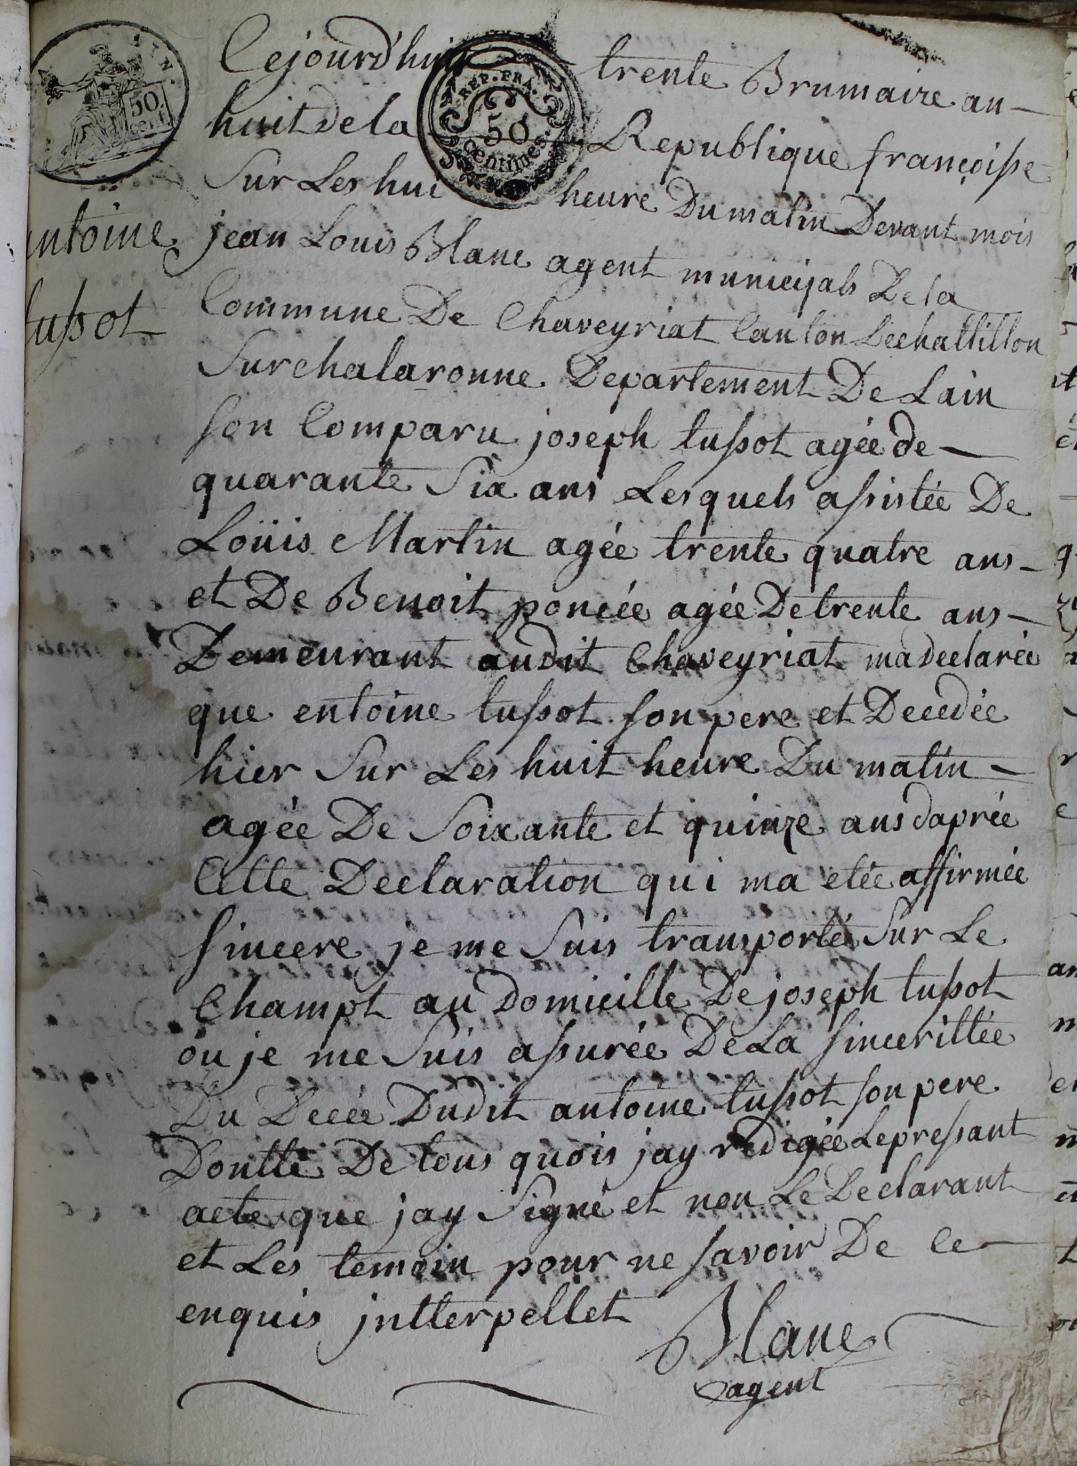 Cejourd'hui trente Brumaire an
huit de la Republique françoisse
Sur Les hui heure Du matin Devant mois
jean Louis Blanc agent municipals De la
Commune De Chaveyriat Canton Dechattillon
Sur chalaronne Departement De Lain
son Comparu joseph tussot agée de
quarante Six ans Lesquels assistée De
Loüis Martin agée trente quatre ans
et De Benoit poncée agée De trente ans
Demeurant audit Chaveyriat ma declarée
que entoine tussot son pere et Decedée
hier Sur Les huit heure Du matin
agée De Soixante et quinze ans daprée
Cette Declaration qui ma etée affirmée
sincere je me Suis transportée Sur Le
Champt au Domicille De joseph tussot
ou je me Suis assurée De La sincerittée
Du Decée Dudit antoine tussot son pere
Dontte De tous quois jay redigée Le pressant
acte que jay Signé et non Le Declarant
et Les temoin pour ne savoir De Ce
enquis jntterpellet
Blanc
agent
antoine
tussot
REP. FRA.
50
centimes
50